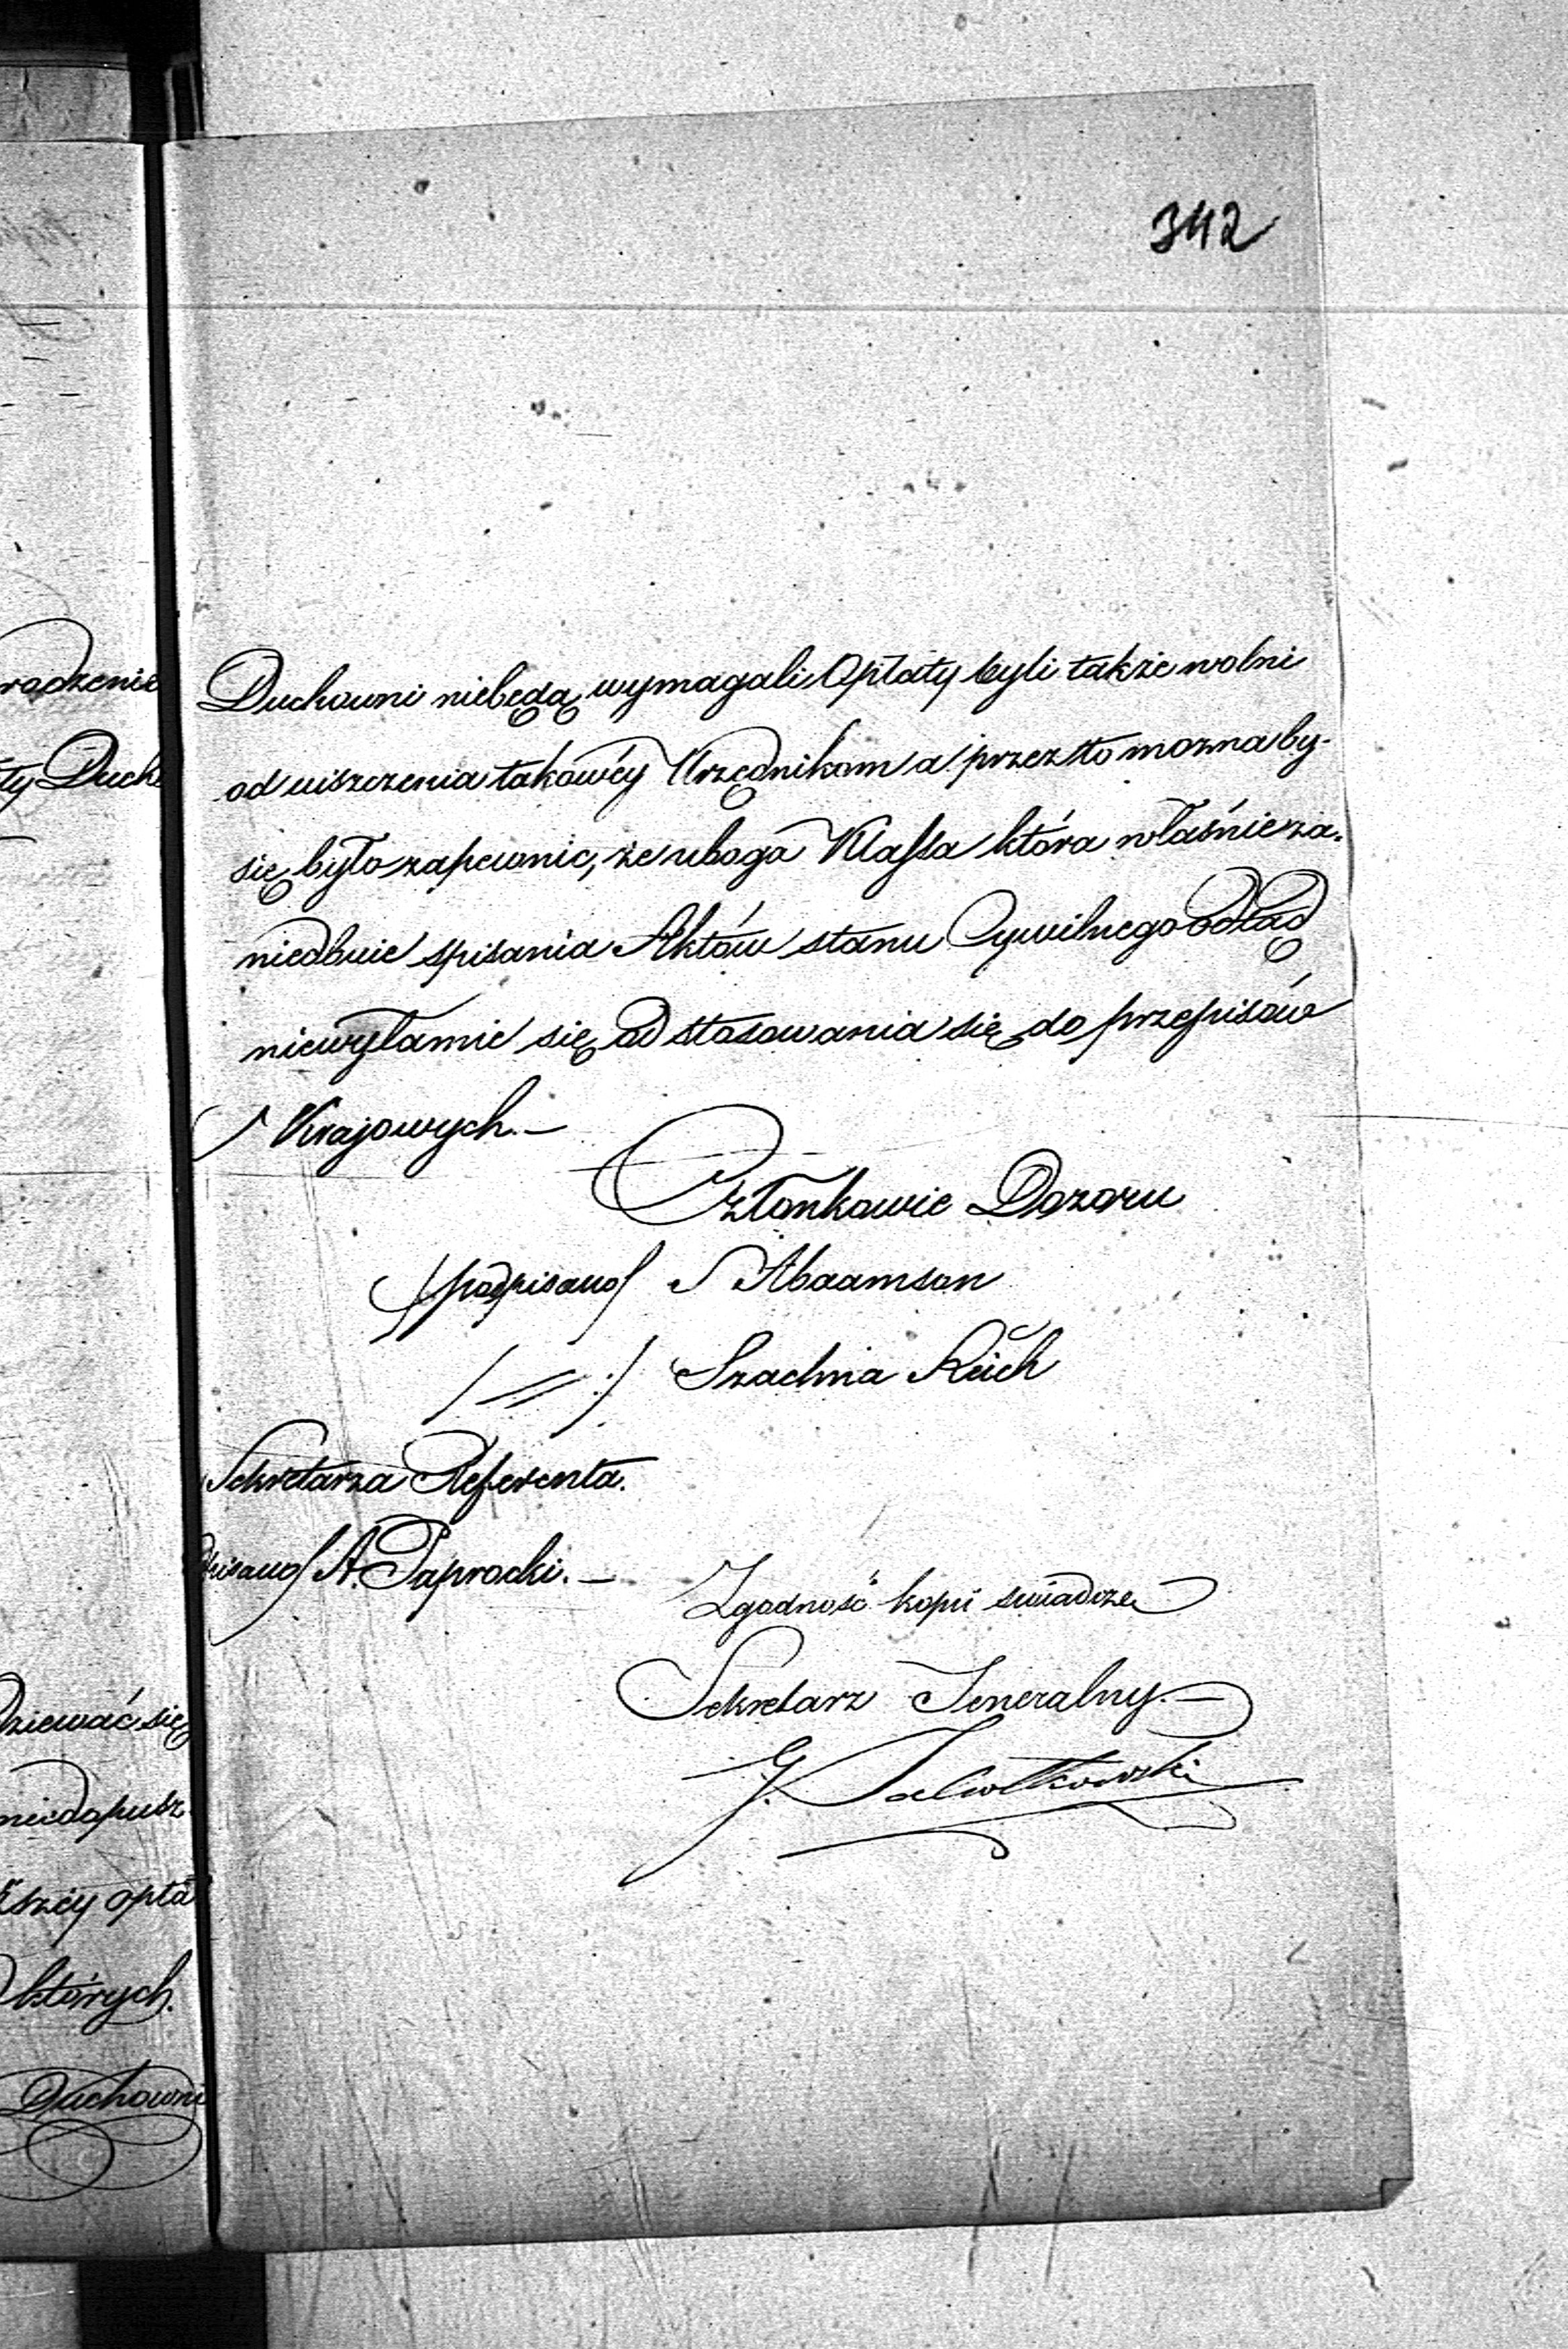 342
rodzenie
ty Duch
Duchowni niebędą wymagali Opłaty byli także wolni
od uiszczenia takowéy Urzędnikom a przez to mozna by-
się było zapewnic, że uboga Klassa która właśnie za-
niedbuie spisania Aktów stanu Cywilnego odtąd
niewyłamie się od stosowania się do przepisów
Krajowych.—
Członkowie Dozoru
/podpisano/ S Abaamson
/ — :/ Szachnia Reich
Sekretarza Referenta.
pisano/ A. Paprocki.—
Zgodność kopii swiadcze
Sekretarz Jeneralny.—
dziewać się
niedopusz-
széy opła
których.
Duchowni